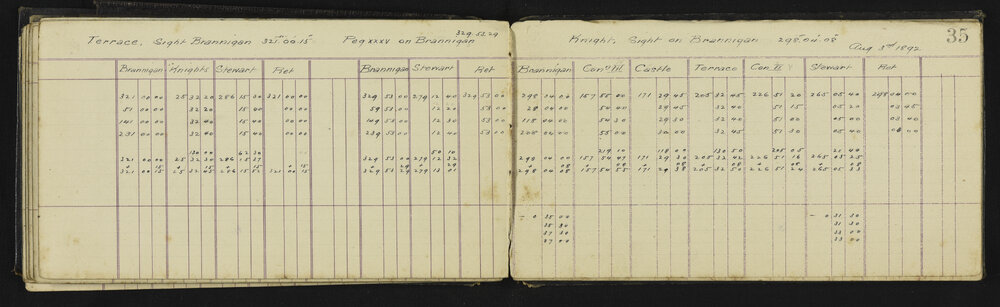 Terrace, Sight Brannigan 321° 00' 15" Peg XXXV on Brannigan 329.53.29
Brannigan Knights Stewart Ret Brannigan Stewart Ret
321 00 00 25 32 20 286 15 00 321 00 00 329 53 00 279 12 40 329 53 00
51 00 00 32 20 15 40 00 00 59 53 00 12 20 53 00
141 00 00 32 40 15 40 00 00 149 53 00 12 30 53 00
231 00 00 32 40 15 40 00 00 239 53 00 12 40 53 00
130 00 62 30 50 10
321 00 00 25 32 30 286 15 37 329 53 00 279 12 32
+ 15 + 15 + 15 + 15 + 29 + 29
321 00 15 25 32 45 286 15 52 321 00 15 329 53 29 279 13 01
35
Knight, Sight on Brannigan 298° 04' 08"
Aug 3rd 1892
Brannigan Con VIII Castle Terrace Con VI Stewart Ret
298 04 00 157 55 00 171 29 45 205 32 45 226 51 20 265 05 40 298 04 00
28 04 00 54 40 29 45 32 40 51 15 05 20 03 45
118 04 00 54 30 29 30 32 40 51 00 05 00 03 40
208 04 00 55 00 30 00 32 45 51 30 05 40 04 00
219 10 118 00 130 50 205 05 21 40
298 04 00 157 54 47 171 29 30 205 32 42 226 51 16 265 05 25
+ 08 + 08 + 08 + 08 + 08 + 08
298 04 08 157 54 55 171 29 38 205 32 50 226 51 24 265 05 33
- 0 35 00 - 0 31 30
35 30 31 30
37 30 33 00
37 00 33 00